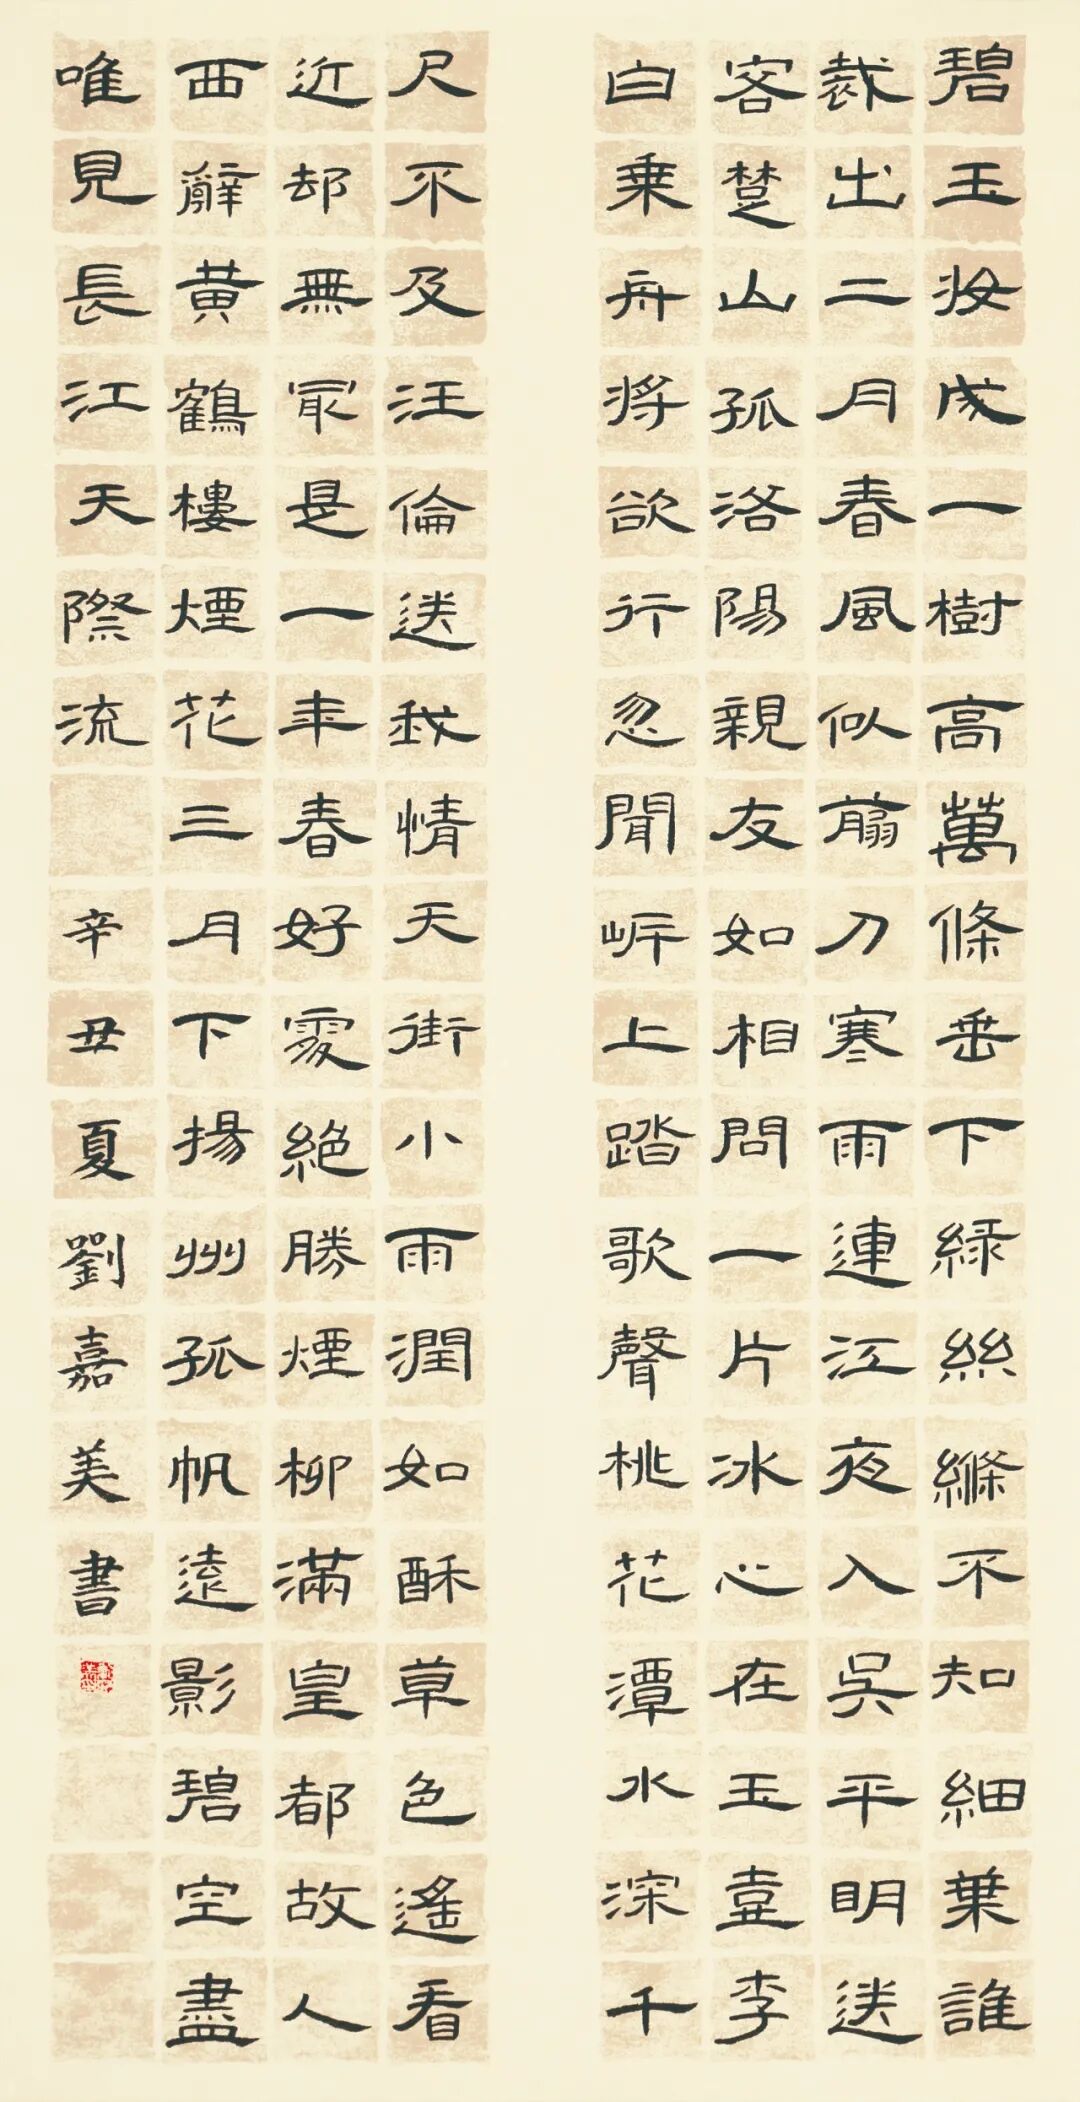 碧玉妝成一樹高萬條垂下緑絲縧不知細葉誰
裁出二月春風似翦刀寒雨連江夜入吳平明送
客楚山孤洛陽親友如相問一片冰心在玉壺李
白乘舟將欲行忽聞岸上踏歌聲桃花潭水深千
尺不及汪倫送我情天街小雨潤如酥草色遙看
近却無最是一年春好處絕勝煙柳滿皇都故人
西辭黃鶴樓煙花三月下揚州孤帆遠影碧空盡
唯見長江天際流 辛丑夏劉嘉美書